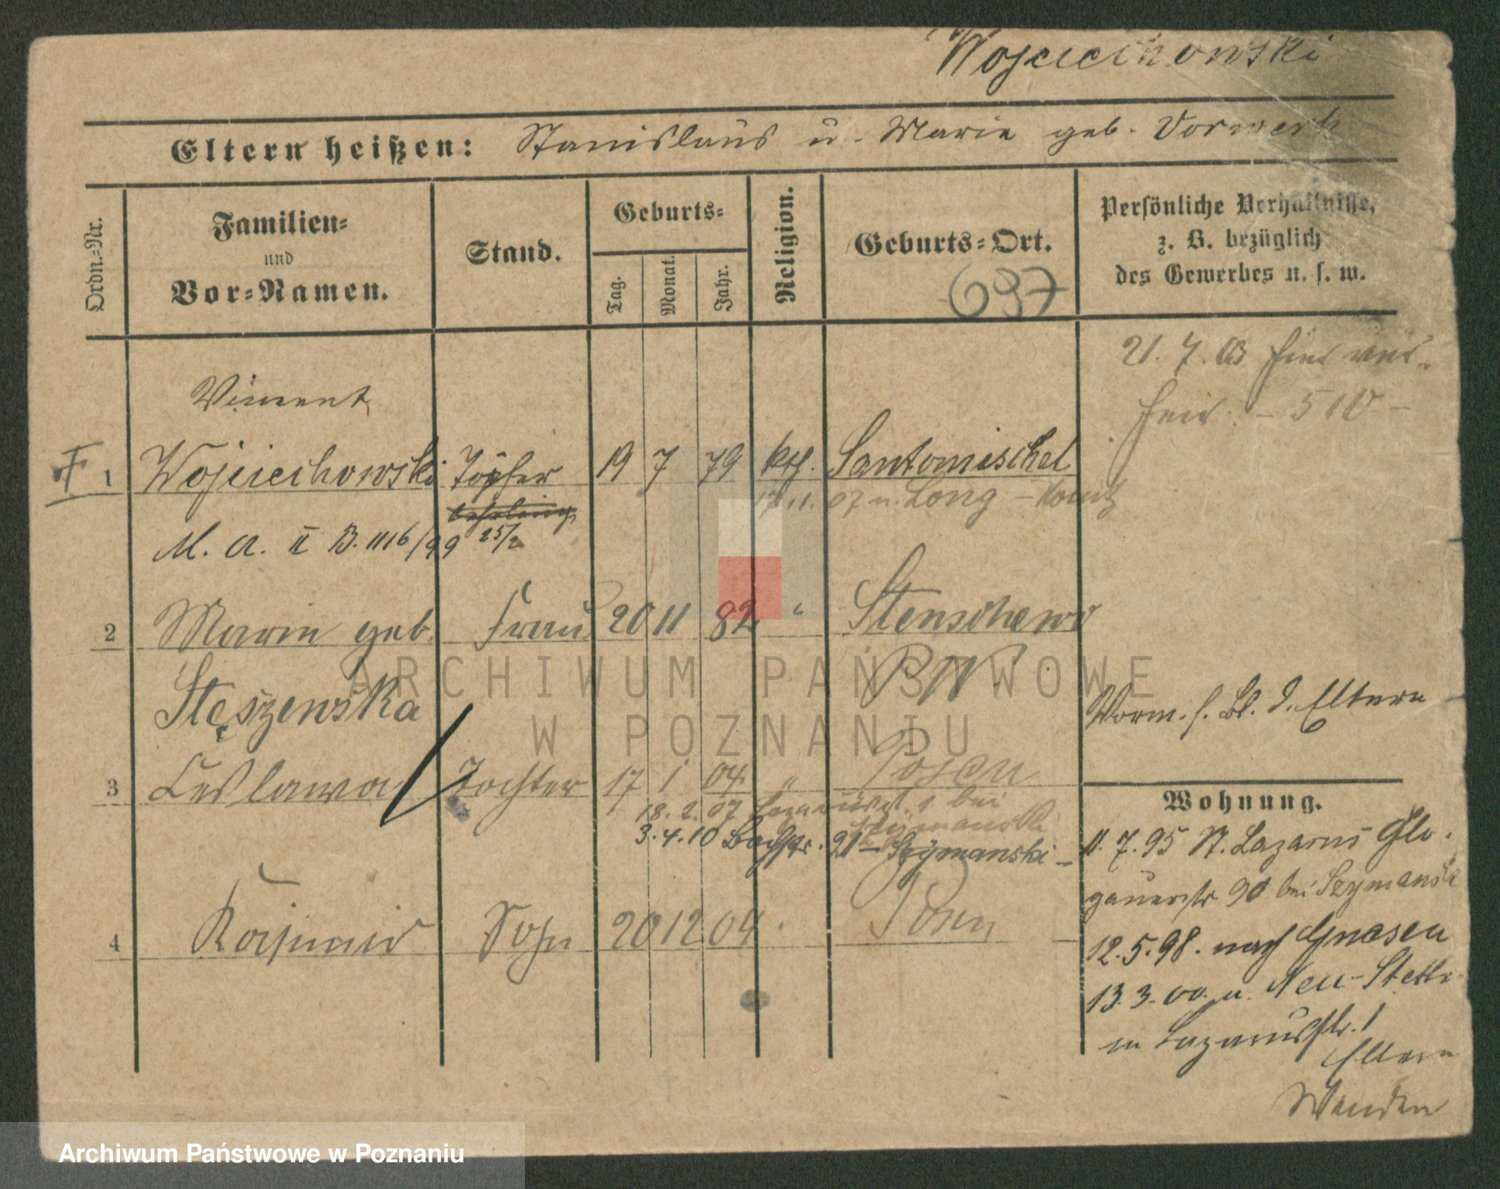 Wojciechowski
Eltern heißen: Stanislaus u. Marie geb. Vorwerk
Ordn.-Nr.
Familien-
und
Vor-Namen.
Stand.
Geburts-
Tag.
Monat.
Jahr.
Religion.
Geburts-Ort.
697
Persönliche Verhältnisse,
z. B. bezüglich
des Gewerbes u. s. w.
21. 7. 03 hier
510
Vincent
F 1 Wojciechowski Töpfer 19 7 79 kth. Santomischel
M. a. II B. 1116/99 25/2
2 Marie geb. Frau 20 11 82 " Stenschewo
Stęszewska
Vorm. s. Bl. d. Eltern
3 Ceslawa Tochter 17 1 04 " Posen
18. 2. 07 1 bei
Szymanski
3. 4. 10 21 Szymanski
4 Kasimir Sohn 20 12 04 Posen
Wohnung.
11. 7. 95 St. Lazarus Glo-
gauerstr 90 bei Szymanski
12. 5. 98. nach Gnesen
13. 3. 00. u. Neu-Stettin
in Lazarusstr. 1
Eltern
Wenden
ARCHIWUM PAŃSTWOWE
W POZNANIU
Archiwum Państwowe w Poznaniu